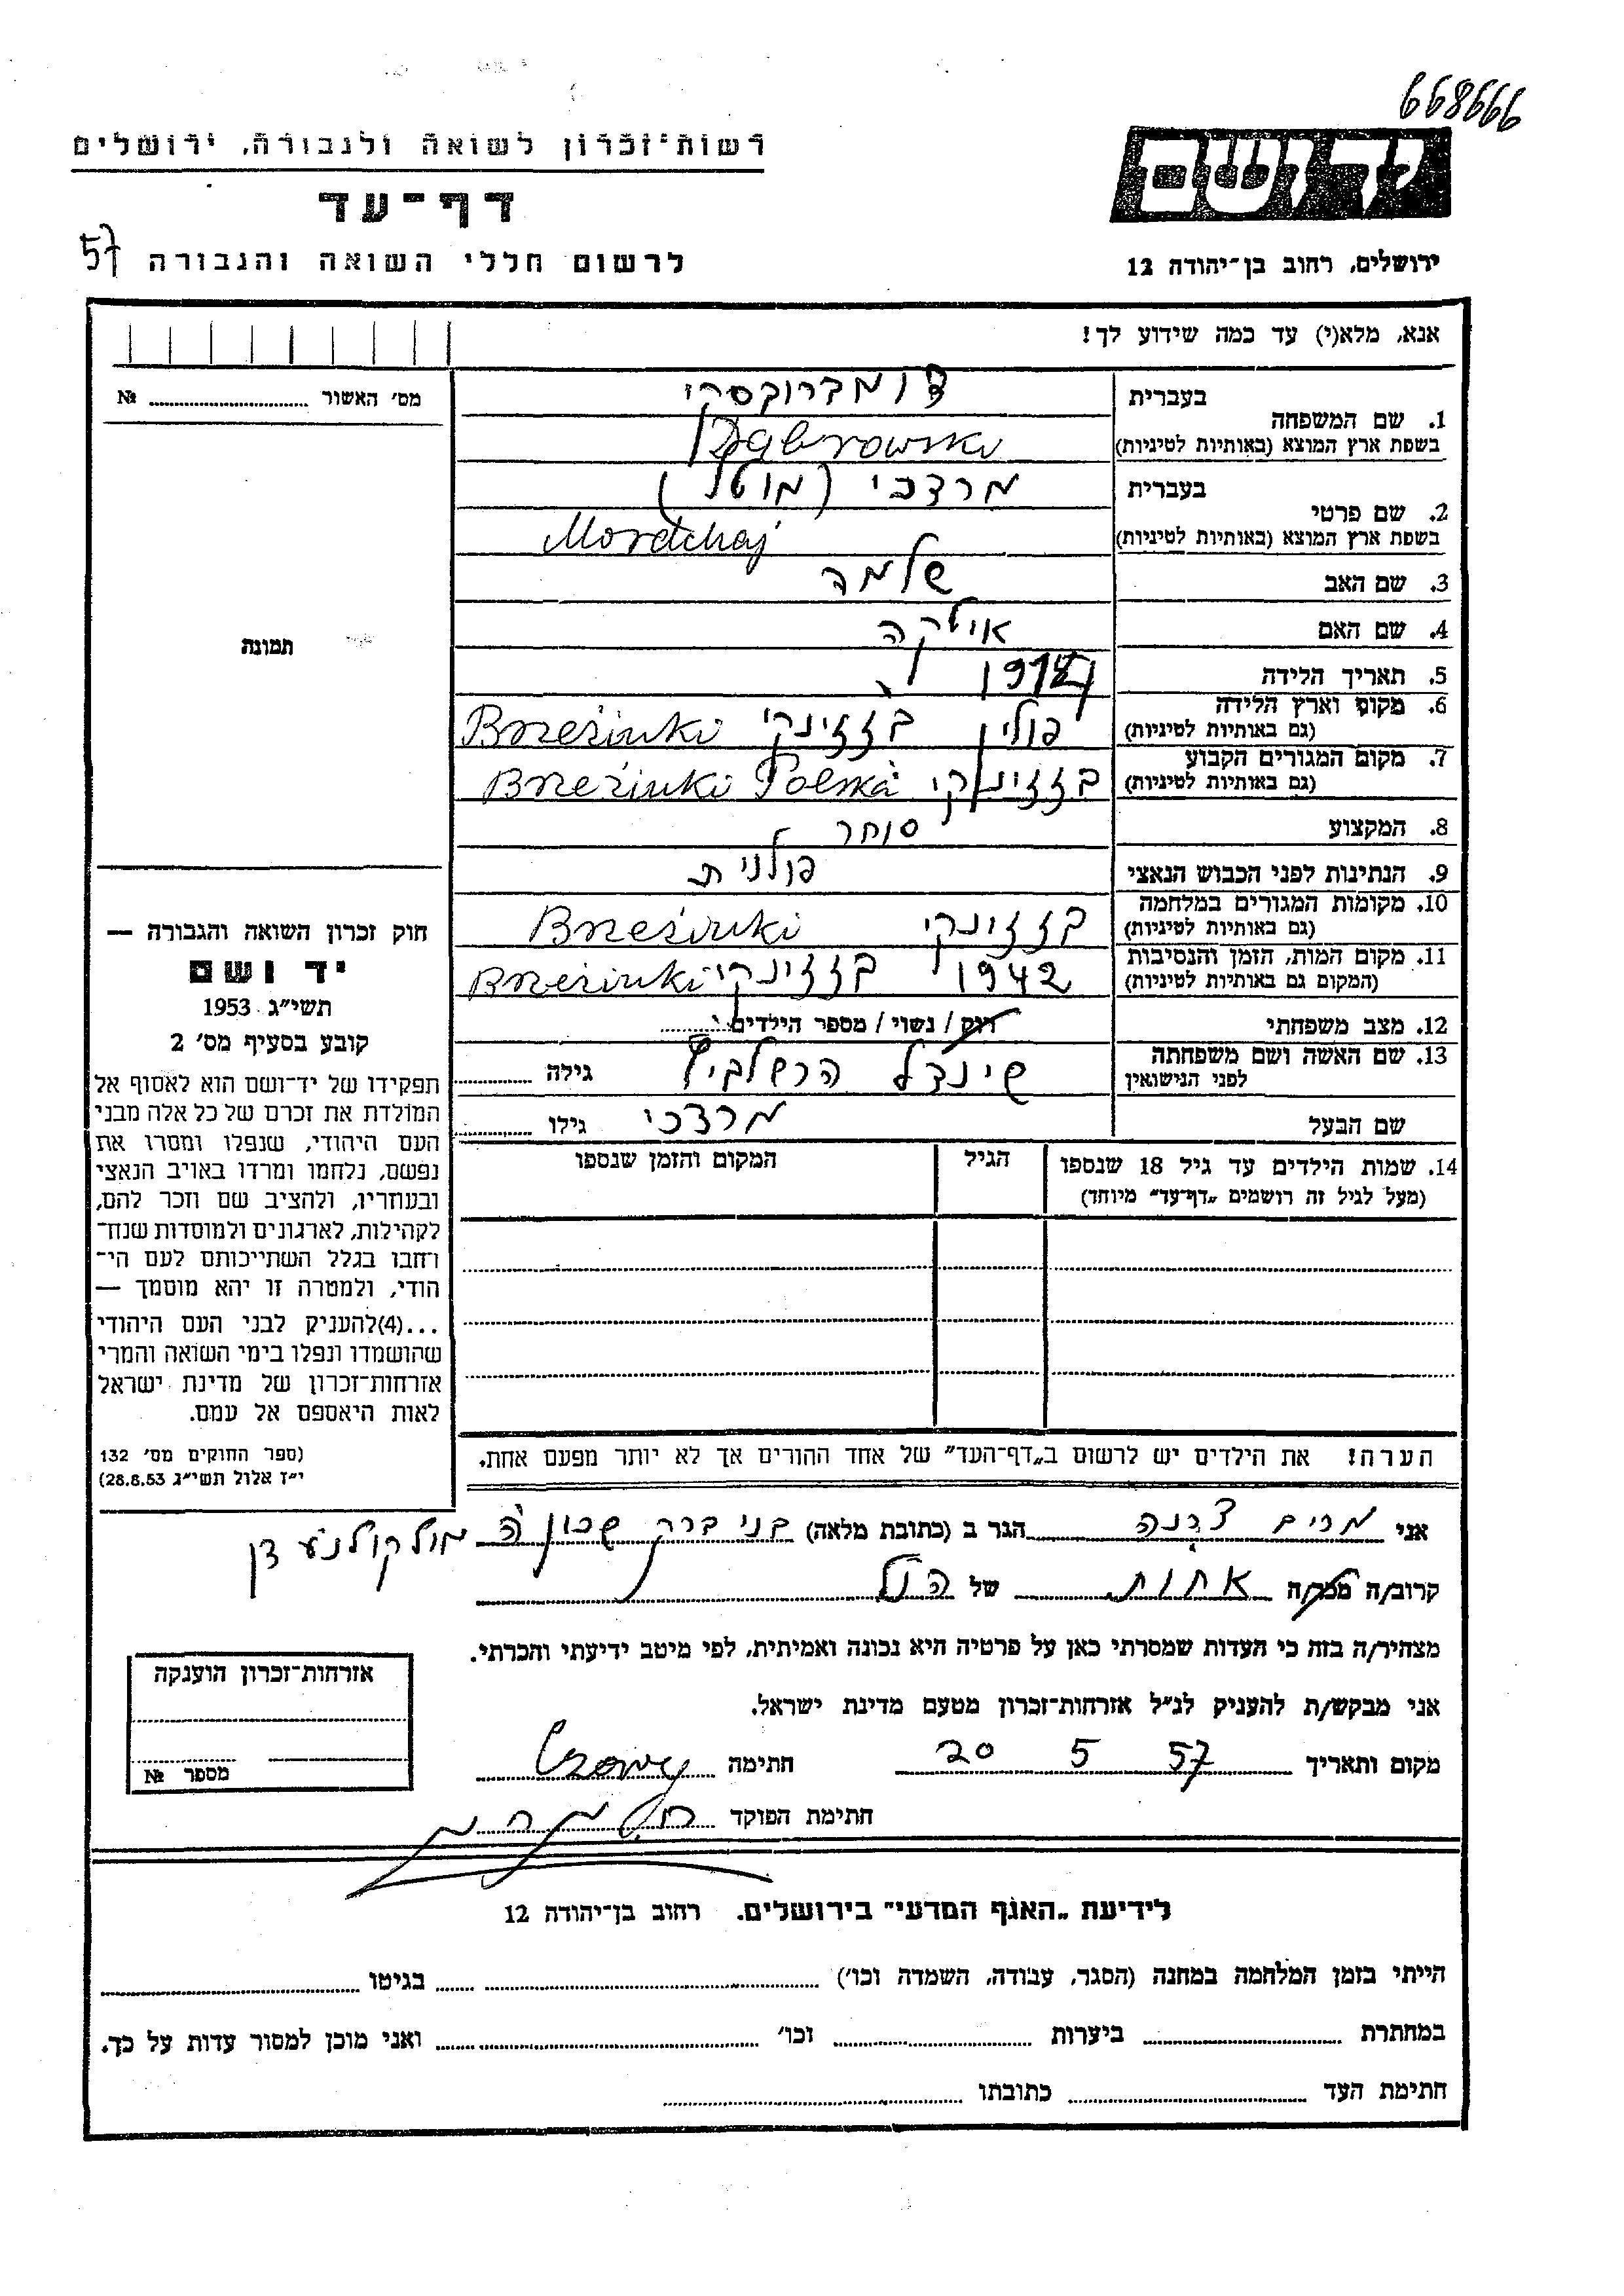 668666
רשות־זכרון לשואה ולגבורה, ירושלים
דף־עד
לרשום חללי השואה והגבורה 57
יד ושם
ירושלים, רחוב בן־יהודה 12
אנא, מלא(י) עד כמה שידוע לך!
מס׳ האשור ............ №
תמונה
1. שם המשפחה
בעברית דומברובסקי
בשפת ארץ המוצא (באותיות לטיניות) Dąbrowski
2. שם פרטי
בעברית מרדכי (מוטל)
בשפת ארץ המוצא (באותיות לטיניות) Mordchaj
3. שם האב שלמה
4. שם האם
5. תאריך הלידה
6. מקום וארץ הלידה
(גם באותיות לטיניות) פולין בזזינקי Brzeźinki
7. מקום המגורים הקבוע
(גם באותיות לטיניות) בזזינקי Brzeźinki Polska
8. המקצוע סוחר
9. הנתינות לפני הכבוש הנאצי פולנית
10. מקומות המגורים במלחמה
(גם באותיות לטיניות) בזזינקי Brzeźinki
11. מקום המות, הזמן והנסיבות
(המקום גם באותיות לטיניות) 1942 בזזינקי Brzeźinki
12. מצב משפחתי רוק / נשוי / מספר הילדים
13. שם האשה ושם משפחתה
לפני הנישואין שינדל הרשלביץ גילה
שם הבעל מרדכי גילו
14. שמות הילדים עד גיל 18 שנספו הגיל המקום והזמן שנספו
(מעל לגיל זה רושמים „דף־עד״ מיוחד)
חוק זכרון השואה והגבורה —
יד ושם
תשי״ג 1953
קובע בסעיף מס׳ 2
תפקידו של יד־ושם הוא לאסוף אל
המולדת את זכרם של כל אלה מבני
העם היהודי, שנפלו ומסרו את
נפשם, נלחמו ומרדו באויב הנאצי
ובעוזריו, ולהציב שם וזכר להם,
לקהילות, לארגונים ולמוסדות שנח־
רבו בגלל השתייכותם לעם הי־
הודי, ולמטרה זו יהא מוסמך —
...(4)להעניק לבני העם היהודי
שהושמדו ונפלו בימי השואה והמרי
אזרחות־זכרון של מדינת ישראל
לאות היאספם אל עמם.
(ספר החוקים מס׳ 132
י״ז אלול תשי״ג 28.8.53)
הערה! את הילדים יש לרשום ב„דף־העד״ של אחד ההורים אך לא יותר מפעם אחת.
אני מרים הגר ב (כתובת מלאה) בני ברק שכון ה מול קולנוע דן
קרוב/ה מכר/ה אחות של הנ״ל
מצהיר/ה בזה כי העדות שמסרתי כאן על פרטיה היא נכונה ואמיתית, לפי מיטב ידיעתי והכרתי.
אני מבקש/ת להעניק לנ״ל אזרחות־זכרון מטעם מדינת ישראל.
מקום ותאריך 20 5 57 חתימה
חתימת הפוקד
אזרחות־זכרון הוענקה
מספר №
לידיעת „האגף המדעי״ בירושלים. רחוב בן־יהודה 12
הייתי בזמן המלחמה במחנה (הסגר, עבודה, השמדה וכו׳) ............ בגיטו ............
במחתרת ............ ביערות ............ וכו׳ ............ ואני מוכן למסור עדות על כך.
חתימת העד ............ כתובתו ............